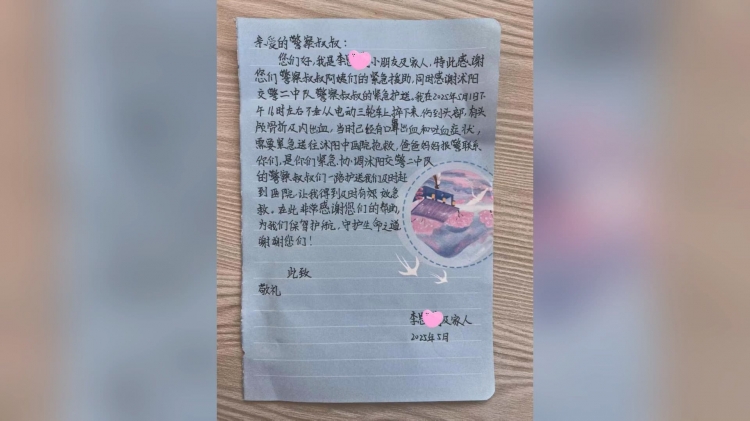 亲爱的警察叔叔:
您们好,我是李小朋友及家人,特此感谢
您们警察叔叔阿姨们的紧急援助,同时感谢沭阳
交警二中队警察叔叔的紧急护送。我在2025年5月1日下
午16时左右不幸从电动三轮车上摔下来,伤到头部,有头
颅骨折及内出血,当时已经有口鼻出血和吐血症状,
需要紧急送往沭阳中医院抢救,爸爸妈妈报警联系
你们,是你们紧急协调沭阳交警二中队
的警察叔叔们一路护送我们及时赶
到医院,让我得到及时有效救急
救。在此非常感谢您们的帮助,
为我们保驾护航,守护生命之道
谢谢您们!
此致
敬礼
李及家人
2025年5月